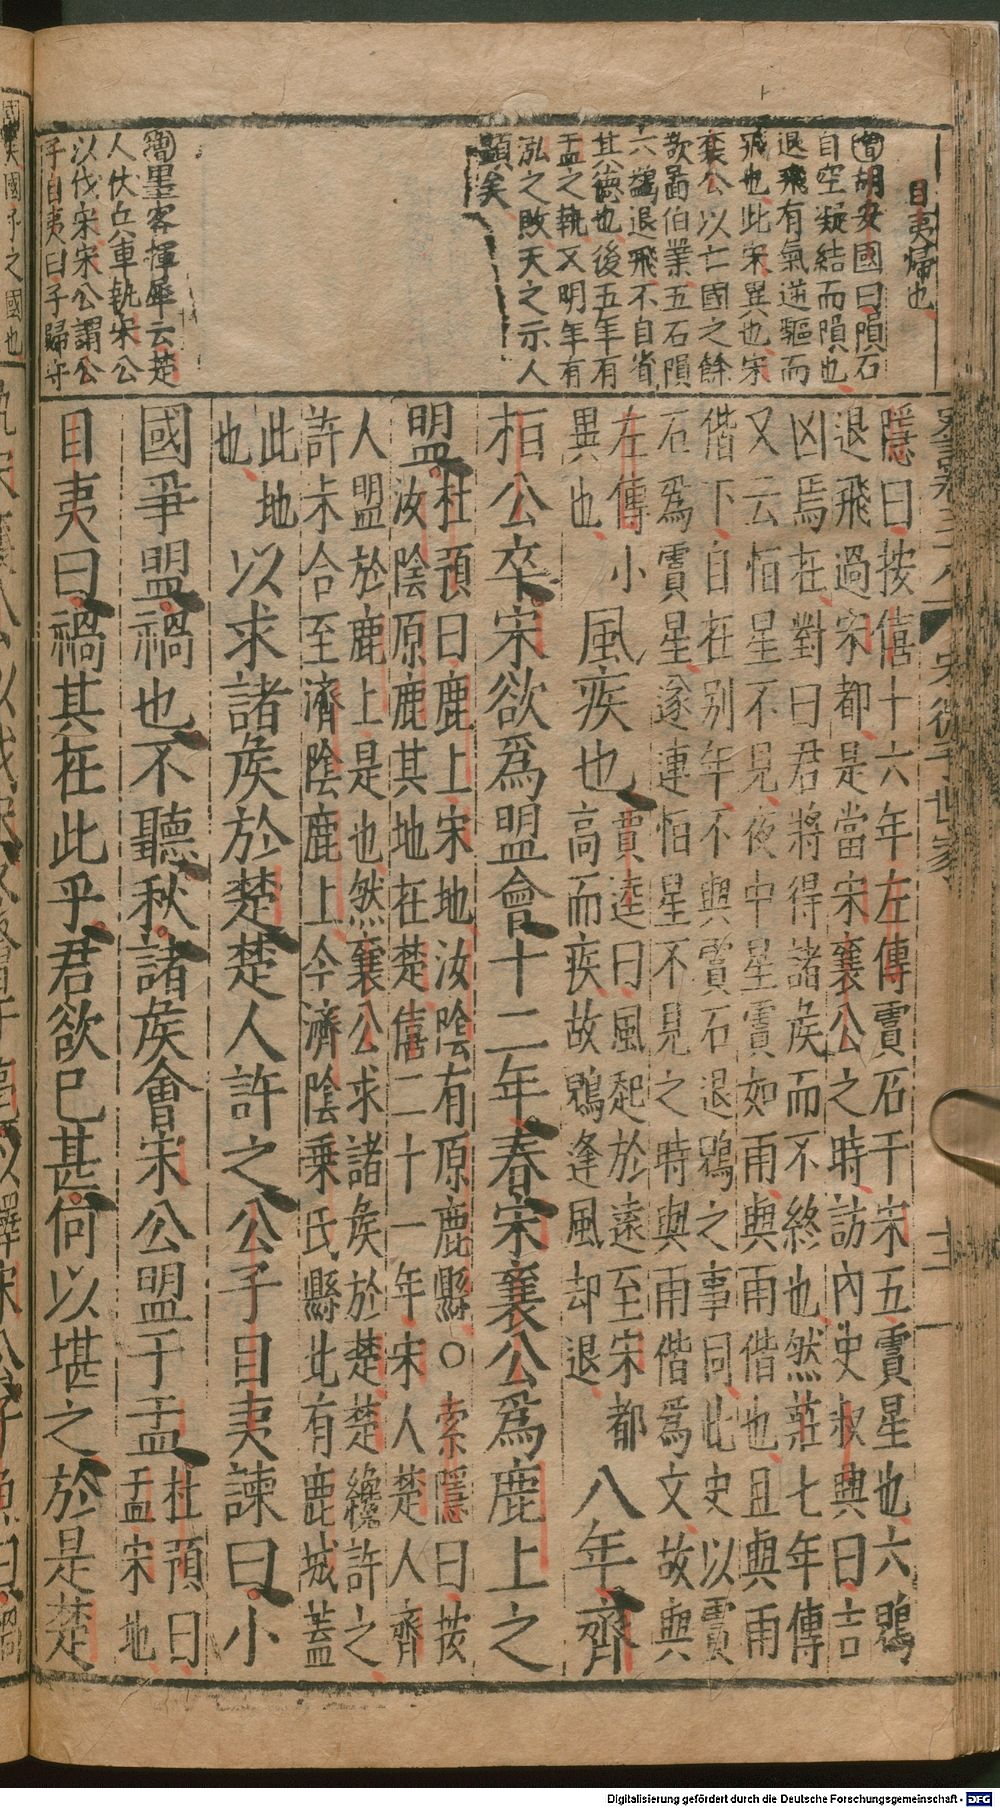 目夷歸也
增胡安國曰隕石
自空凝結而隕也
退飛有氣逆驅而
飛也此宋異也宋
襄公以亡國之餘
欲啚伯業五石隕
六鷁退飛不自省
其德也後五年有
盂之執又明年有
泓之敗天之示人
顯矣
增墨客揮犀云楚
人伏兵車執宋公
以伐宋宋公謂公
子目夷曰子歸守
國矣國子之國也
宋微子世家
隱曰按僖十六年左傳霣石于宋五霣星也六鶂
退飛過宋都是當宋襄公之時訪內史叔興曰吉
凶焉在對曰君將得諸侯而不終也然莊七年傳
又云恒星不見夜中星霣如雨與雨偕也且與雨
偕下自在别年不與霣石退鶂之事同此史以霣
石爲霣星遂連恒星不見之時與雨偕爲文故與
左傳小
異也
風疾也
賈逵曰風起於遠至宋都
高而疾故鶂逢風却退
八年齊
桓公卒宋欲爲盟會十二年春宋襄公爲鹿上之
盟
杜預曰鹿上宋地汝陰有原鹿縣○索隱曰按
汝陰原鹿其地在楚僖二十一年宋人楚人齊
人盟於鹿上是也然襄公求諸侯於楚楚纔許之
許未合至濟陰鹿上今濟陰乗氏縣北有鹿城蓋
此地
也
以求諸侯於楚楚人許之公子目夷諫曰小
國爭盟禍也不聽秋諸侯會宋公盟于盂
杜預曰
盂宋地
目夷曰禍其在此乎君欲已甚何以堪之於是楚
Digitalisierung gefördert durch die Deutsche Forschungsgemeinschaft - DFG